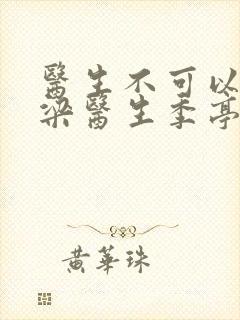 醫生不可以
梁醫生季亭
黃華珠